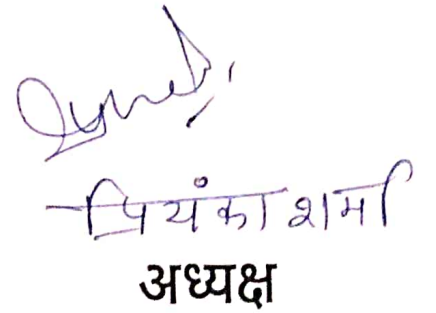 प्रियंका शर्मा
अध्यक्ष